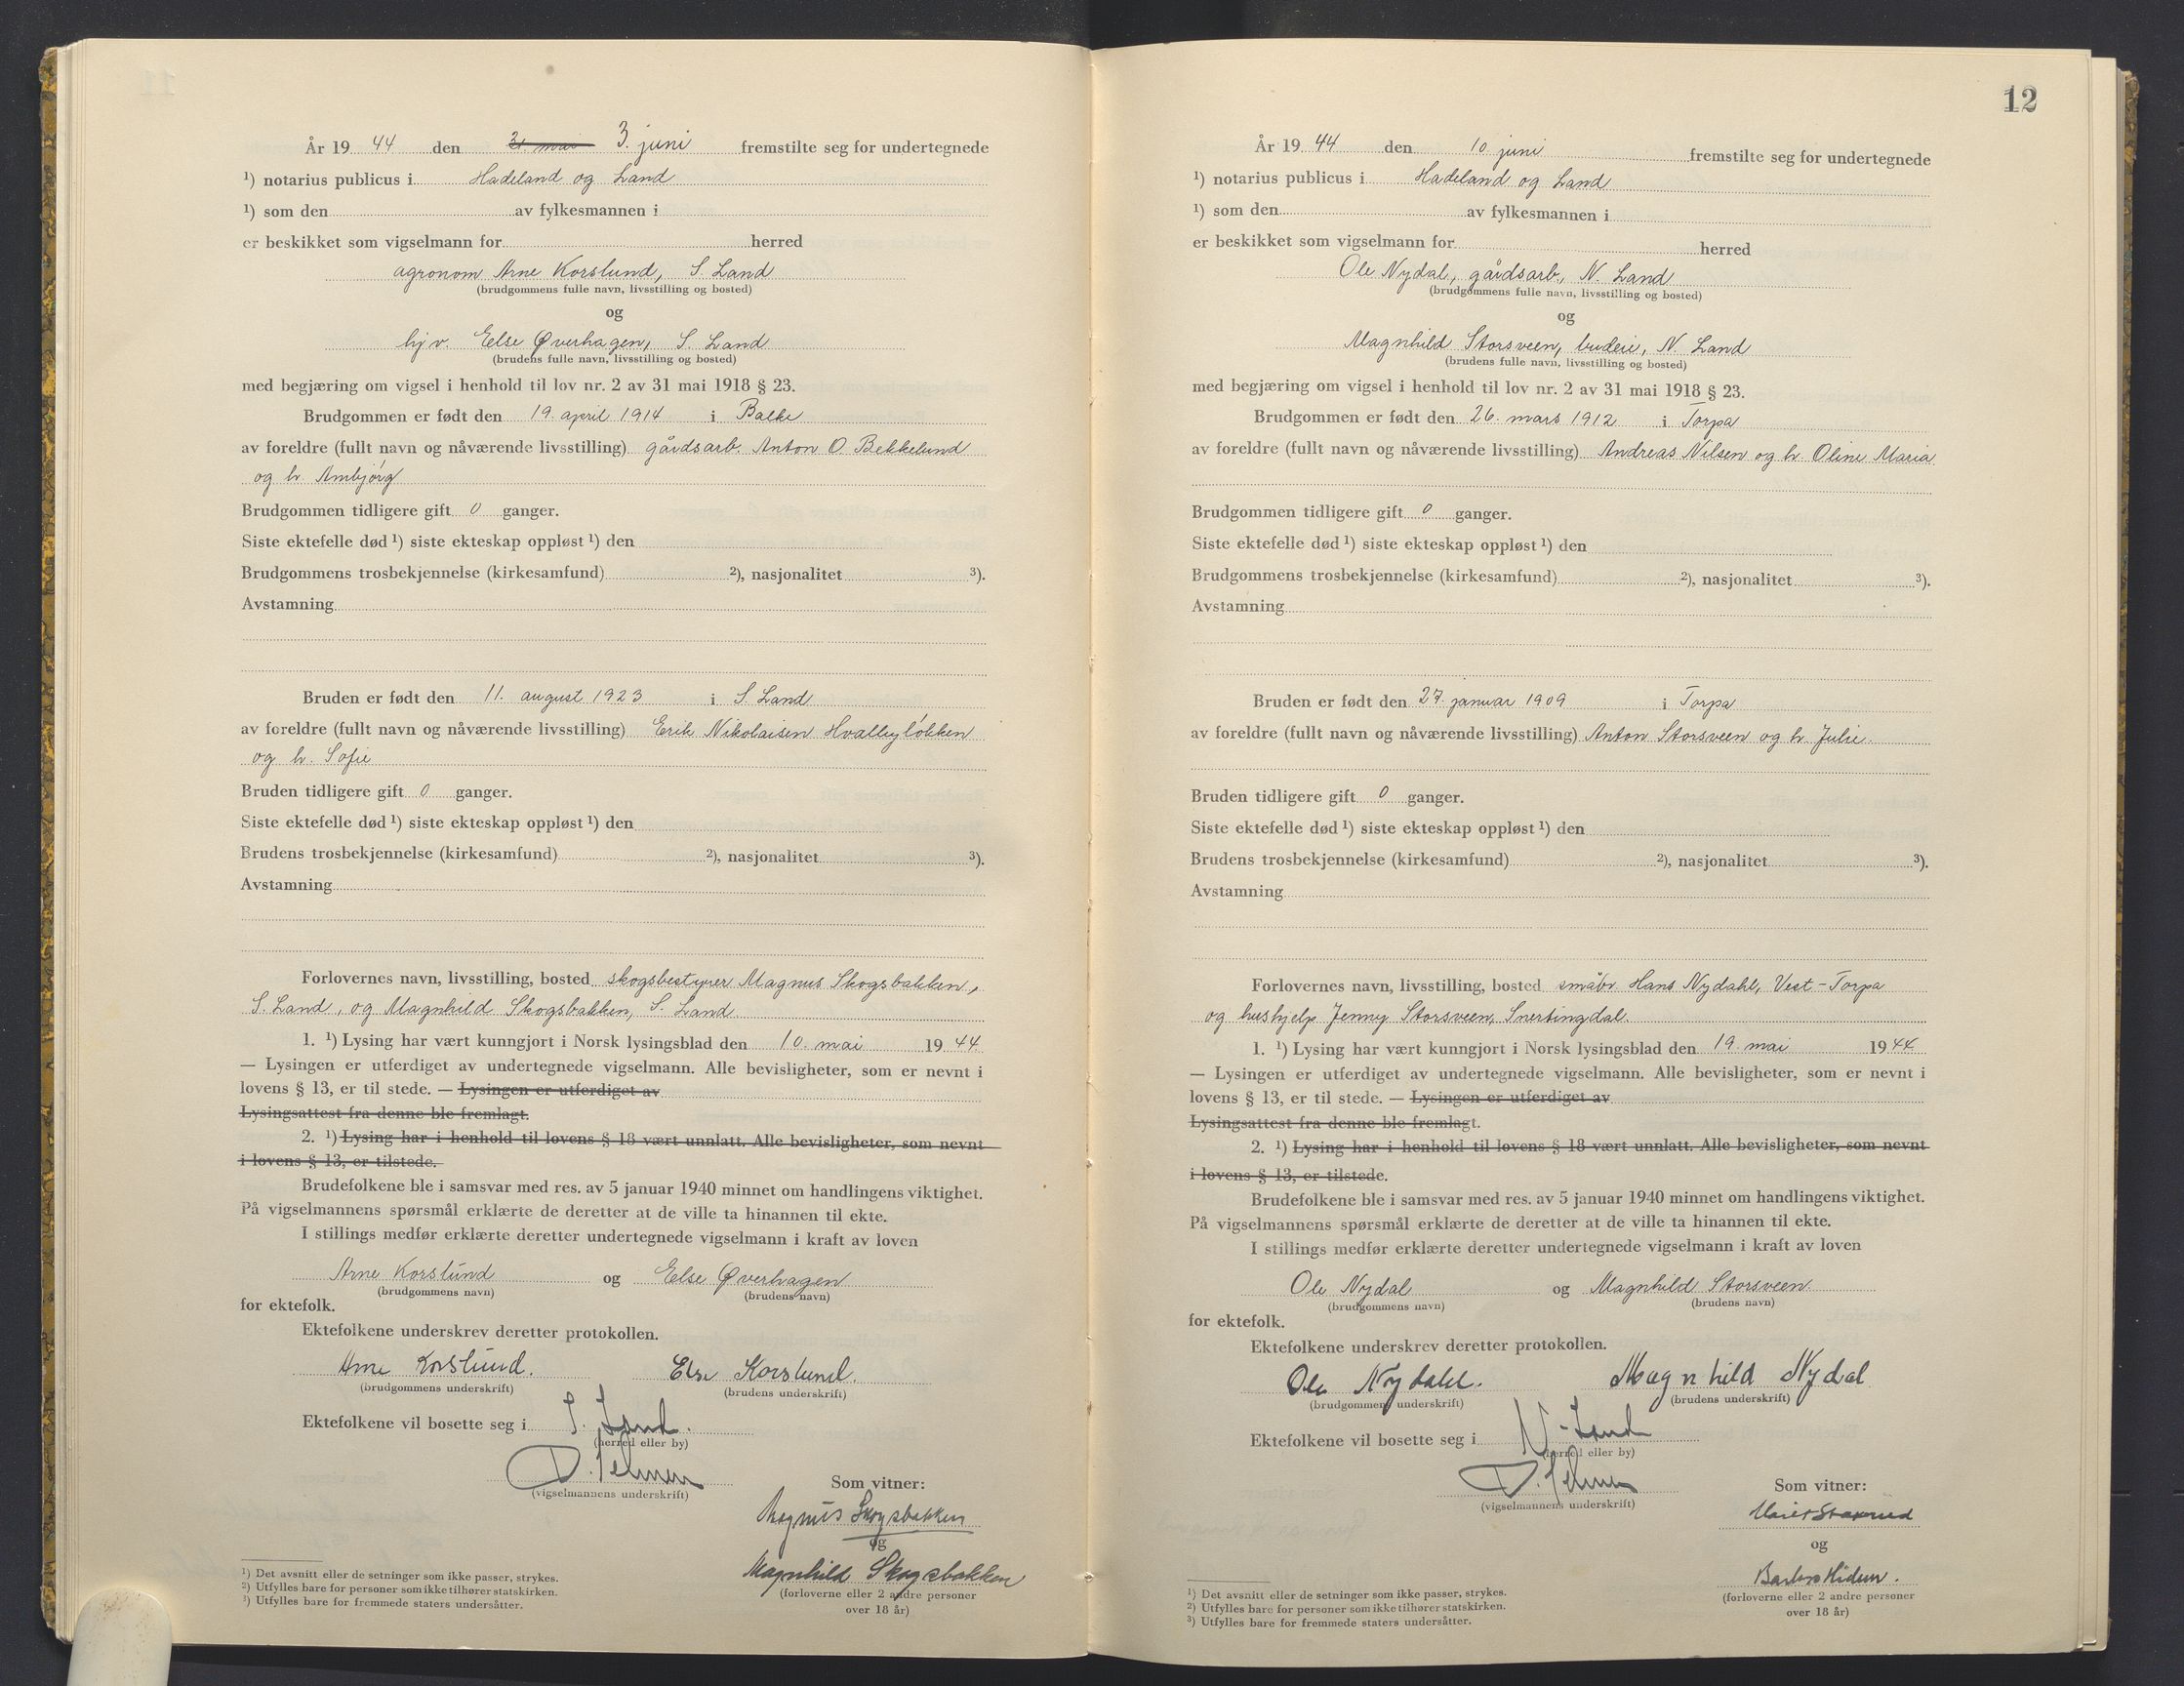 År 19 44 den 31 mai 3. juni fremstilte seg for undertegnede
¹) notarius publicus i Hadeland og Land
¹) som den av fylkesmannen i
er beskikket som vigselmann for herred
agronom Arne Korslund, S. Land
(brudgommens fulle navn, livsstilling og bosted)
og
hj.v. Else Øverhagen, S. Land
(brudens fulle navn, livsstilling og bosted)
med begjæring om vigsel i henhold til lov nr. 2 av 31 mai 1918 § 23.
Brudgommen er født den 19. april 1914 i Balke
av foreldre (fullt navn og nåværende livsstilling) gårdsarb. Anton O. Bekkelund
og h. Ambjørg
Brudgommen tidligere gift 0 ganger.
Siste ektefelle død ¹) siste ekteskap oppløst ¹) den
Brudgommens trosbekjennelse (kirkesamfund) ²), nasjonalitet ³).
Avstamning
Bruden er født den 11. august 1923 i S. Land
av foreldre (fullt navn og nåværende livsstilling) Erik Nikolaisen Hvalbyløkken
og h. Sofie
Bruden tidligere gift 0 ganger.
Siste ektefelle død ¹) siste ekteskap oppløst ¹) den
Brudens trosbekjennelse (kirkesamfund) ²), nasjonalitet ³).
Avstamning
Forlovernes navn, livsstilling, bosted skogsbestyrer Magnus Skogsbakken,
S. Land, og Magnhild Skogsbakken, S. Land
1. ¹) Lysing har vært kunngjort i Norsk lysingsblad den 10. mai 19 44
— Lysingen er utferdiget av undertegnede vigselmann. Alle bevisligheter, som er nevnt i
lovens § 13, er til stede. — Lysingen er utferdiget av
Lysingsattest fra denne ble fremlagt.
2. ¹) Lysing har i henhold til lovens § 18 vært unnlatt. Alle bevisligheter, som nevnt
i lovens § 13, er tilstede.
Brudefolkene ble i samsvar med res. av 5 januar 1940 minnet om handlingens viktighet.
På vigselmannens spørsmål erklærte de deretter at de ville ta hinannen til ekte.
I stillings medfør erklærte deretter undertegnede vigselmann i kraft av loven
Arne Korslund og Else Øverhagen
(brudgommens navn) (brudens navn)
for ektefolk.
Ektefolkene underskrev deretter protokollen.
Arne Korslund. Else Korslund.
(brudgommens underskrift) (brudens underskrift)
Ektefolkene vil bosette seg i S. Land.
(herred eller by)
(vigselmannens underskrift)
Som vitner:
Magnus Skogsbakken
og
Magnhild Skogsbakken
(forloverne eller 2 andre personer
over 18 år)
¹) Det avsnitt eller de setninger som ikke passer, strykes.
²) Utfylles bare for personer som ikke tilhører statskirken.
³) Utfylles bare for fremmede staters undersåtter.
12
År 19 44 den 10 juni fremstilte seg for undertegnede
¹) notarius publicus i Hadeland og Land
¹) som den av fylkesmannen i
er beskikket som vigselmann for herred
Ole Nydal, gårdsarb., N. Land
(brudgommens fulle navn, livsstilling og bosted)
og
Magnhild Storsveen, budeie, N. Land
(brudens fulle navn, livsstilling og bosted)
med begjæring om vigsel i henhold til lov nr. 2 av 31 mai 1918 § 23.
Brudgommen er født den 26. mars 1912 i Torpa
av foreldre (fullt navn og nåværende livsstilling) Andreas Nilsen og h. Oline Maria
Brudgommen tidligere gift 0 ganger.
Siste ektefelle død ¹) siste ekteskap oppløst ¹) den
Brudgommens trosbekjennelse (kirkesamfund) ²), nasjonalitet ³).
Avstamning
Bruden er født den 27. januar 1909 i Torpa
av foreldre (fullt navn og nåværende livsstilling) Anton Storsveen og h. Julie.
Bruden tidligere gift 0 ganger.
Siste ektefelle død ¹) siste ekteskap oppløst ¹) den
Brudens trosbekjennelse (kirkesamfund) ²), nasjonalitet ³).
Avstamning
Forlovernes navn, livsstilling, bosted småbr. Hans Nydahl, Vest-Torpa
og hushjelp Jenny Storsveen, Snertingdal.
1. ¹) Lysing har vært kunngjort i Norsk lysingsblad den 19. mai 19 44
— Lysingen er utferdiget av undertegnede vigselmann. Alle bevisligheter, som er nevnt i
lovens § 13, er til stede. — Lysingen er utferdiget av
Lysingsattest fra denne ble fremlagt.
2. ¹) Lysing har i henhold til lovens § 18 vært unnlatt. Alle bevisligheter, som nevnt
i lovens § 13, er tilstede.
Brudefolkene ble i samsvar med res. av 5 januar 1940 minnet om handlingens viktighet.
På vigselmannens spørsmål erklærte de deretter at de ville ta hinannen til ekte.
I stillings medfør erklærte deretter undertegnede vigselmann i kraft av loven
Ole Nydal og Magnhild Storsveen.
(brudgommens navn) (brudens navn)
for ektefolk.
Ektefolkene underskrev deretter protokollen.
Ole Nydahl. Magnhild Nydal
(brudgommens underskrift) (brudens underskrift)
Ektefolkene vil bosette seg i N-Land
(herred eller by)
(vigselmannens underskrift)
Som vitner:
og
(forloverne eller 2 andre personer
over 18 år)
¹) Det avsnitt eller de setninger som ikke passer, strykes.
²) Utfylles bare for personer som ikke tilhører statskirken.
³) Utfylles bare for fremmede staters undersåtter.